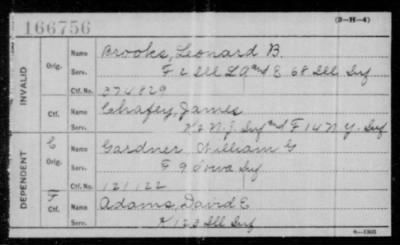 166756
(3-H-4)
INVALID
Orig.
Name Brooks, Leonard B.
Serv. F 2 Ill L A and E 68 Ill Inf
Ctf. No. 374829
Ctf.
Name Chafey, James
Serv. K 2 N.J. Inf and F 14 N.Y. Inf
DEPENDENT
C
Orig.
Name Gardner William G
Serv. F 9 Iowa Inf
Ctf. No. 121122
F
Ctf.
Name Adams, David E
Serv. K 123 Ill Inf